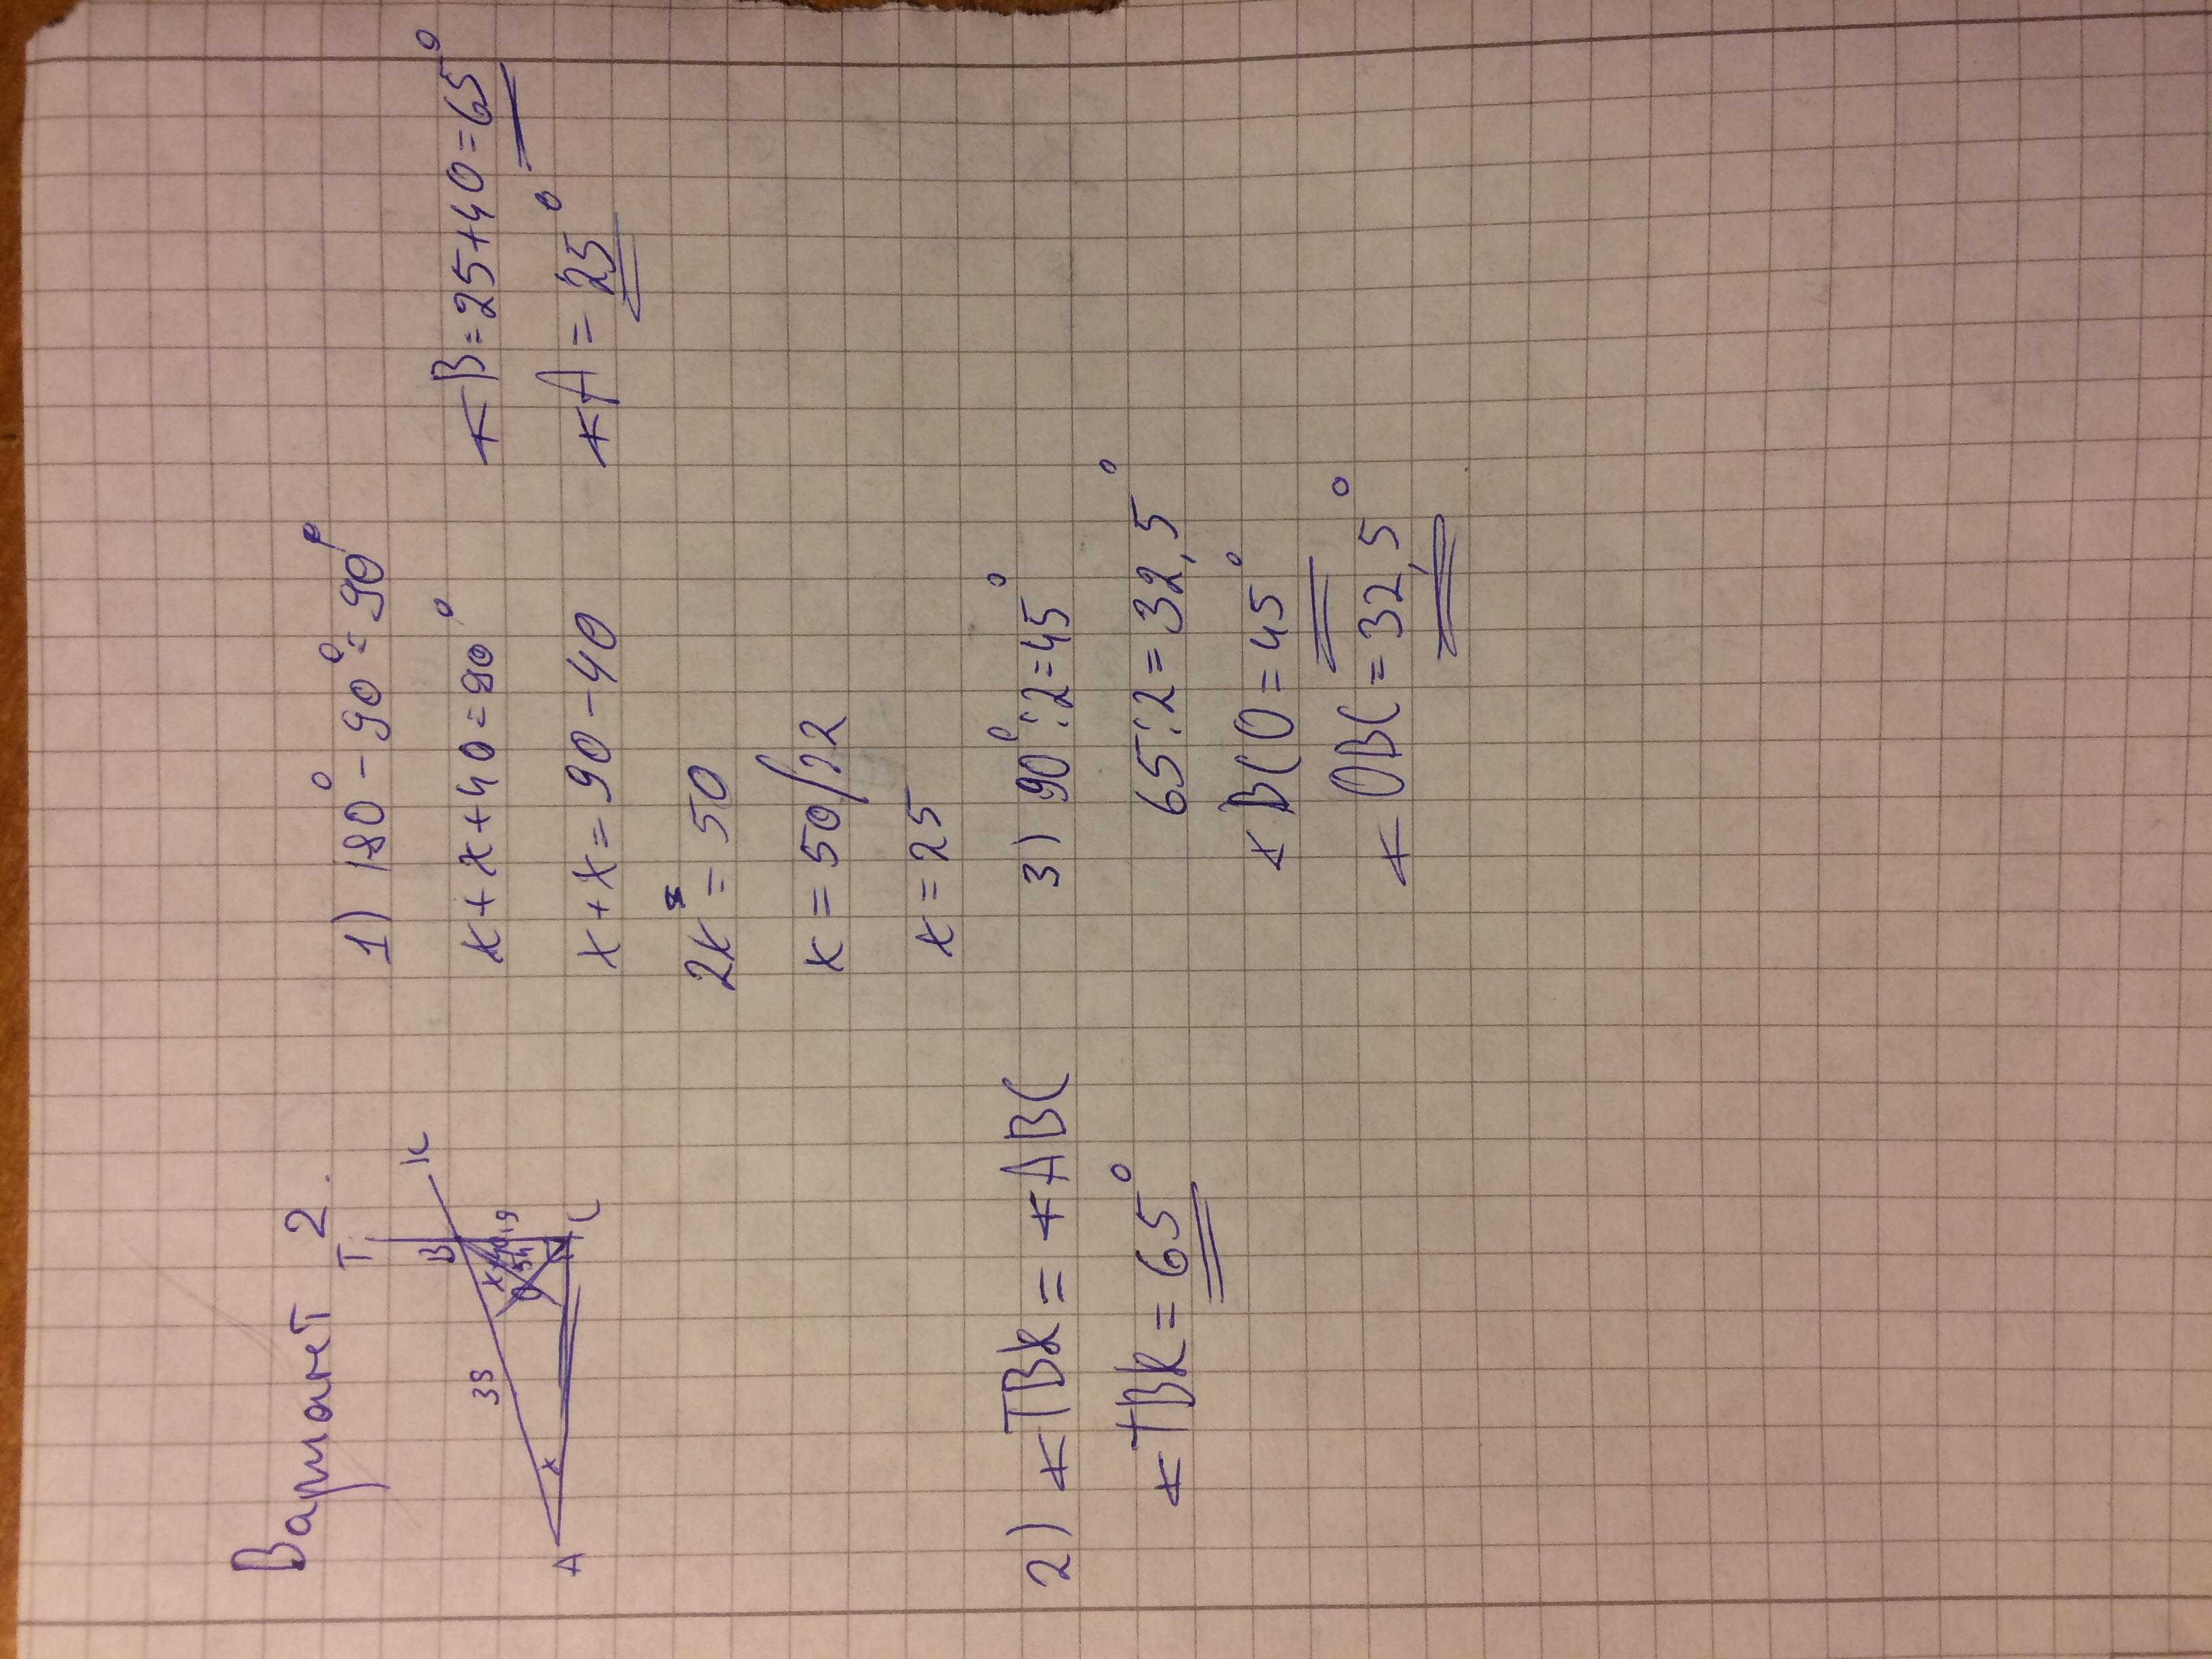 Вариант 2.
T
B
K
38
x+40
19
54
O
A
x
C
1) 180° - 90° = 90°
x + x + 40 = 90°
x + x = 90 - 40
2x = 50
x = 50/22
x = 25
∢B = 25 + 40 = 65°
∢A = 25°
2) ∢TBK = ∢ABC
∢TBK = 65°
3) 90° : 2 = 45°
65 : 2 = 32,5°
∢BCO = 45°
∢OBC = 32,5°